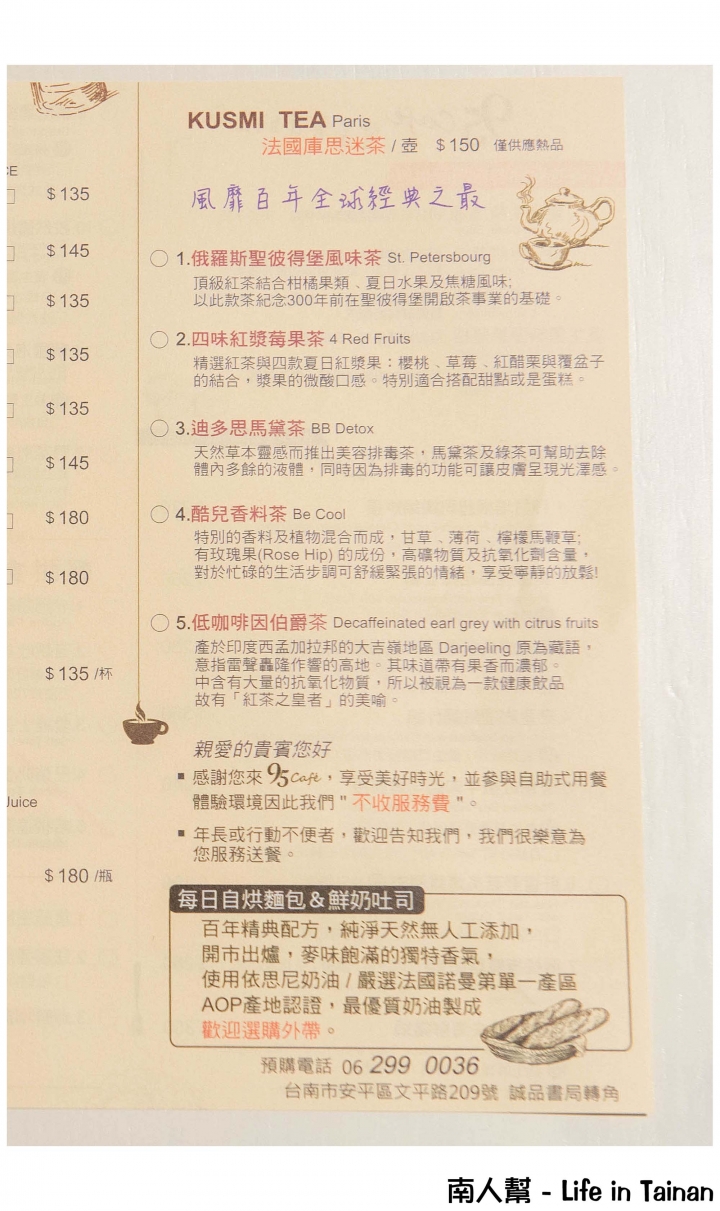 CE
$135
$145
$135
$135
$135
$145
$180
$180
$135 /杯
Juice
$180 /瓶
KUSMI TEA Paris
法國庫思迷茶 / 壺 $150 僅供應熱品
風靡百年全球經典之最
1.俄羅斯聖彼得堡風味茶 St. Petersbourg
頂級紅茶結合柑橘果類、夏日水果及焦糖風味;
以此款茶紀念300年前在聖彼得堡開啟茶事業的基礎。
2.四味紅漿莓果茶 4 Red Fruits
精選紅茶與四款夏日紅漿果：櫻桃、草莓、紅醋栗與覆盆子
的結合，漿果的微酸口感。特別適合搭配甜點或是蛋糕。
3.迪多思馬黛茶 BB Detox
天然草本靈感而推出美容排毒茶，馬黛茶及綠茶可幫助去除
體內多餘的液體，同時因為排毒的功能可讓皮膚呈現光澤感。
4.酷兒香料茶 Be Cool
特別的香料及植物混合而成，甘草、薄荷、檸檬馬鞭草;
有玫瑰果(Rose Hip) 的成份，高礦物質及抗氧化劑含量，
對於忙碌的生活步調可舒緩緊張的情緒，享受寧靜的放鬆!
5.低咖啡因伯爵茶 Decaffeinated earl grey with citrus fruits
產於印度西孟加拉邦的大吉嶺地區 Darjeeling 原為藏語，
意指雷聲轟隆作響的高地。其味道帶有果香而濃郁。
中含有大量的抗氧化物質，所以被視為一款健康飲品
故有「紅茶之皇者」的美喻。
親愛的貴賓您好
▪ 感謝您來 95 Café，享受美好時光，並參與自助式用餐
體驗環境因此我們 " 不收服務費 "。
▪ 年長或行動不便者，歡迎告知我們，我們很樂意為
您服務送餐。
每日自烘麵包＆鮮奶吐司
百年精典配方，純淨天然無人工添加，
開市出爐，麥味飽滿的獨特香氣，
使用依思尼奶油 / 嚴選法國諾曼第單一產區
AOP產地認證，最優質奶油製成
歡迎選購外帶。
預購電話 06 299 0036
台南市安平區文平路209號 誠品書局轉角
南人幫 - Life in Tainan